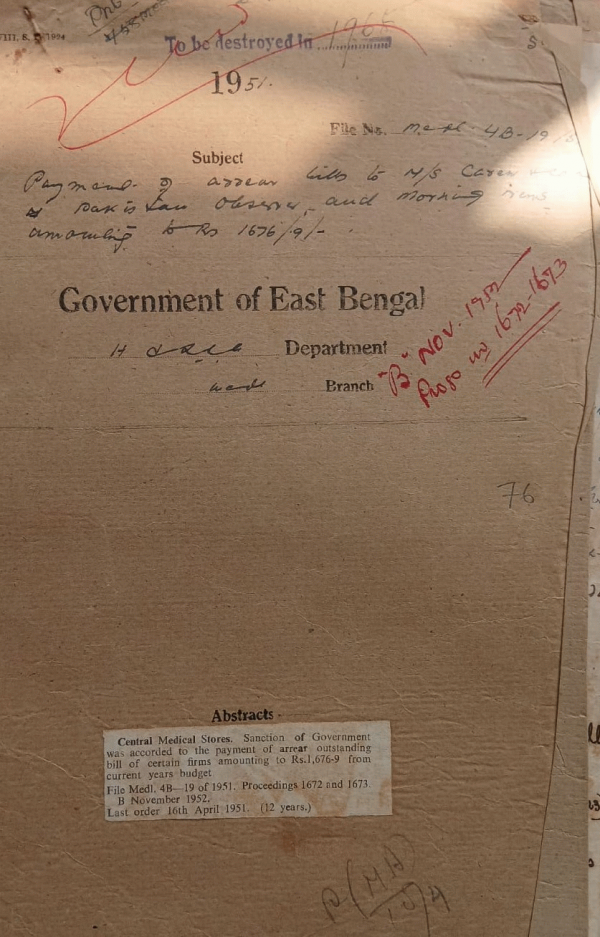 To be destroyed in 1965
1951.
File No. Medl. 4B-19
Subject
Payment of arrear bills to M/S
& Pakistan Observer, and Morning News
amounting to Rs 1676/9/-.
Government of East Bengal
Department
Branch
"B" NOV. 1952
Progs no 1672-1673
76
Abstracts -
Central Medical Stores. Sanction of Government
was accorded to the payment of arrear outstanding
bill of certain firms amounting to Rs.1,676-9 from
current years budget
File Medl. 4B—19 of 1951. Proceedings 1672 and 1673
B November 1952.
Last order 16th April 1951. (12 years.)